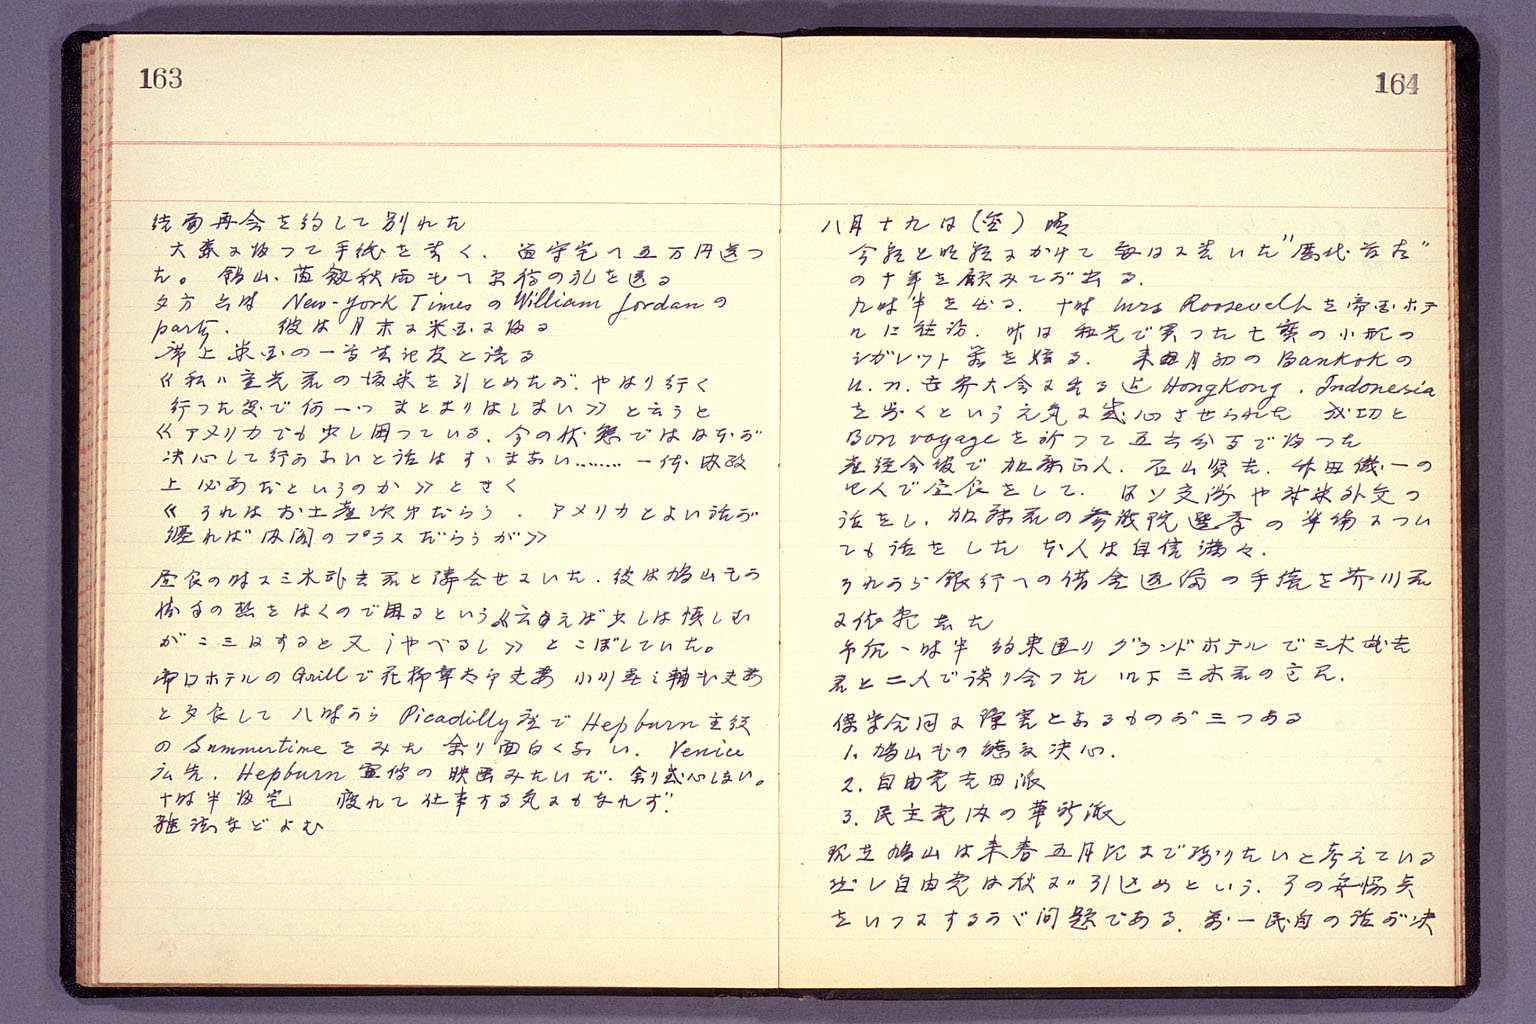 163
再会を約して別れた
大森に帰つて手紙を書く. 留守宅へ五万円送つ
た。
夕方 New-York Times の William Jordan の
party. 彼は月末に米国に帰る
席上米国の一等書記官と語る
《私は重光君の訪米を引とめたが、やはり行く
行つた処で何一つまとまりはしまい》と云うと
《アメリカでも少し困つている、今の状態では日本が
決心して行わないと話はすゝまない……… 一体内政
上必要なというのか》ときく
《それはお土産次第だらう. アメリカとよい話が
出来れば内閣のプラスだらうが》
昼食の時に三木武吉君と隣合せにいた. 彼は鳩山もう
するので困るという《云えば少しは慎しむ
が二三日すると又しやべるし》とこぼしていた。
帝国ホテルの Grill で花柳章太郎夫妻 小川
と夕食して八時から Picadilly 座で Hepburn 主役
の Summertime をみた 余り面白くない. Venice
広告. Hepburn 宣伝の映画みたいだ. 余り感心しない。
十時半帰宅 疲れて仕事する気にもなれず.
雑誌などよむ
164
八月十九日(金) 晴
今朝と昨朝にかけて毎日に書いた"歴代首相"
の十年を顧みてが出る.
九時半を出る. 十時 Mrs Roosevelt を帝国ホテ
ルに往訪. 昨日光で買つた七宝の小形の
シガレット を贈る. 来月初の Bankok の
U.N. 世界大会に出る迄 HongKong. Indonesia
を歩くという元気に感心させられた 成功と
Bon voyage を祈つて 五六分で帰つた
産経会館で加藤 人. 石山賢吉. の
四人で昼食をして. 日ソ交渉や対米外交の
話をし. 加藤君の参議院選挙の準備につい
ても話をした 本人は自信満々.
それから銀行への借金返済の手続を芥川君
に依頼した
午后一時半 約束通りグランドホテルで三木武吉
君と二人で語り合つた 以下三木君の言.
保守合同に障害となるものが三つある
1. 鳩山の 決心.
2. 自由党吉田派
3. 民主党内の革新派
現在鳩山は来春五月頃まで踊りたいと考えている
然し自由党は秋に引込めという. その妥協点
をいつにするかが問題である. 第一民自の話が決